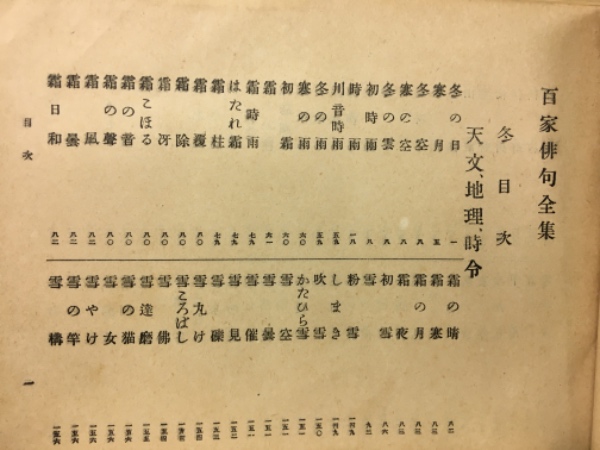 百家俳句全集
冬目次
天文、地理、時令
冬の日 一
寒月 五
冬空 八
寒の空 八
冬の雲 八
初時雨 九
時雨 一八
川音時雨 五九
冬の雨 五九
寒の雨 六〇
初霜 六〇
霜 六一
霜時雨 七九
はたれ霜 七九
霜柱 七九
霜覆 八〇
霜除 八〇
霜冴 八〇
霜こほる 八〇
霜の音 八〇
霜の聲 八〇
霜風
霜曇
霜日和
霜の晴
霜寒 八三
霜の月 八三
霜夜 八三
初雪 八六
雪 九二
粉雪 一四九
しまき 一四九
吹雪 一五〇
かたひら雪 一五一
雪空 一五一
雪曇 一五一
雪催 一五一
雪見 一五二
雪礫
雪丸け 一五四
雪ころばし
雪佛
雪達磨 一五五
雪の猫 一五六
雪女 一五六
雪やけ 一五六
雪の竿 一五六
雪構 一五六
目次
一